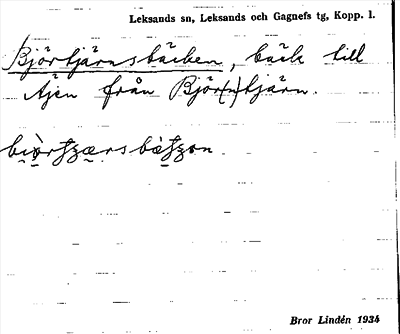 Leksands sn, Leksands och Gagnefs tg, Kopp. l.
Björtjärnsbäcken, bäck till
Ajen från Björ(n)tjärn.
Bror Lindén 1934